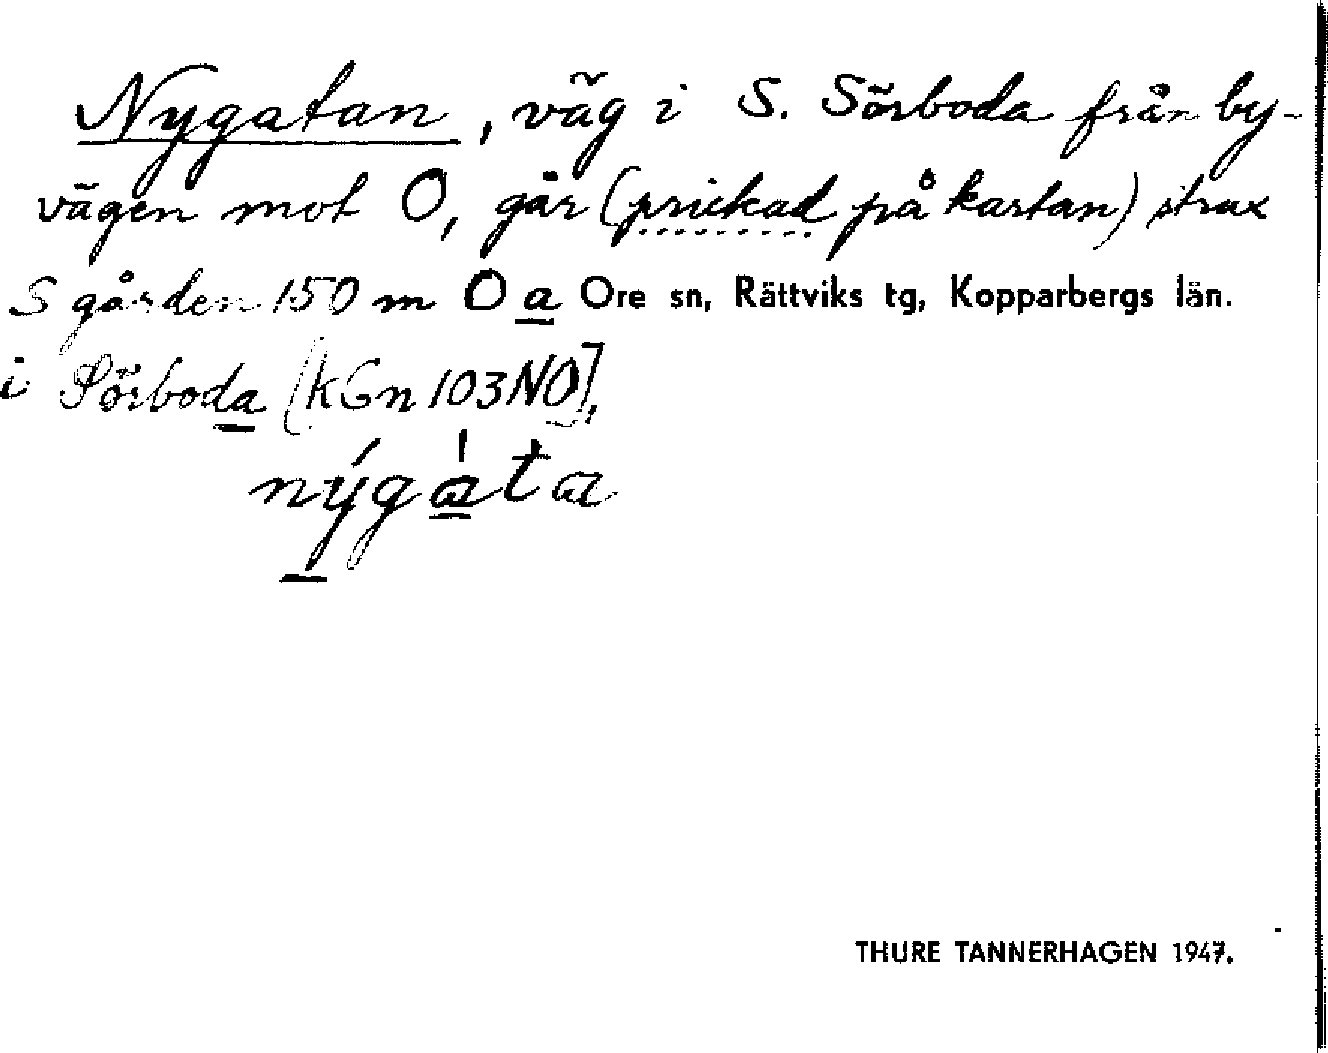 Nygatan, väg i S. Sörboda från by-
vägen mot O, går (prickad på kartan) strax
S gården 150 m O a Ore sn, Rättviks tg, Kopparbergs län.
i Sörboda [kGn 103NO],
nýgàta
THURE TANNERHAGEN 1947.